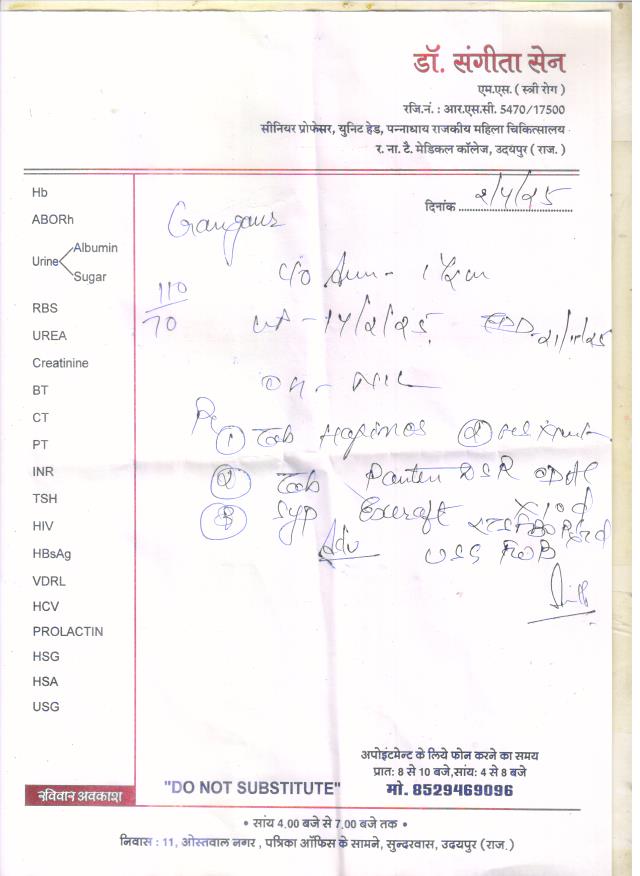 डॉ. संगीता सेन
एम.एस. ( स्त्री रोग )
रजि.नं. : आर.एस.सी. 5470/17500
सीनियर प्रोफेसर, युनिट हेड, पन्नाधाय राजकीय महिला चिकित्सालय
र. ना. टै. मेडिकल कॉलेज, उदयपुर ( राज. )
दिनांक 2/4/25
Hb
ABORh
Urine Albumin
Sugar
RBS
UREA
Creatinine
BT
CT
PT
INR
TSH
HIV
HBsAg
VDRL
HCV
PROLACTIN
HSG
HSA
USG
Gangaur
110
70
C/O
14/2/25
EDD - 21/11/25
OH - NIL
Rx
1 Tab
2 Tab DSR
3 Syp
x 10 d
Adv
USG
अपोइंटमेन्ट के लिये फोन करने का समय
प्रात: 8 से 10 बजे,सांय: 4 से 8 बजे
मो. 8529469096
"DO NOT SUBSTITUTE"
रविवार अवकाश
• सांय 4.00 बजे से 7.00 बजे तक •
निवास : 11, ओस्तवाल नगर , पत्रिका ऑफिस के सामने, सुन्दरवास, उदयपुर (राज.)